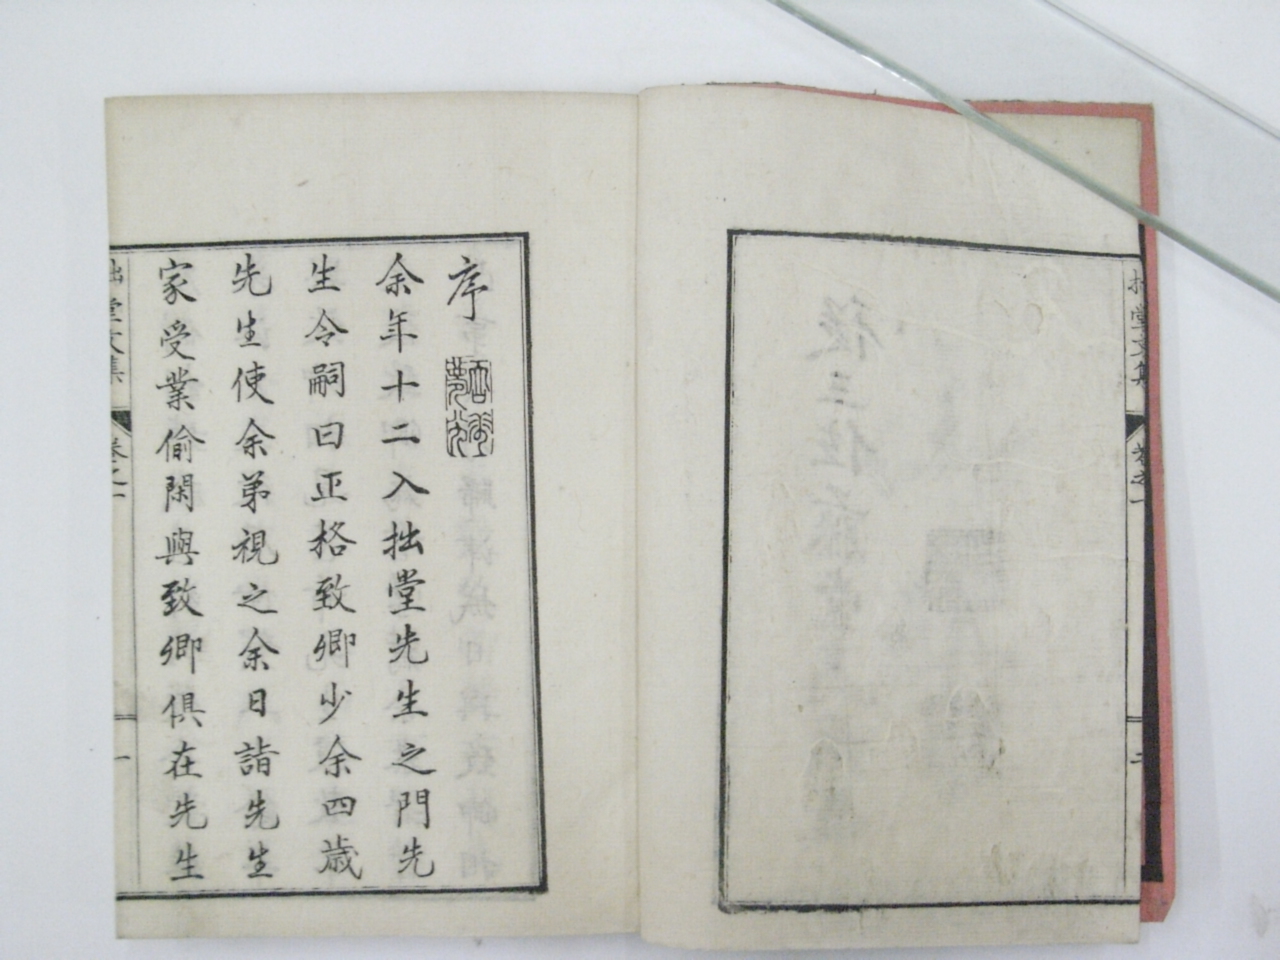 拙堂文集
卷之一
二
序
余年十二入拙堂先生之門先
生令嗣曰正格致卿少余四歲
先生使余弟視之余日詣先生
家受業偷閑與致卿俱在先生
拙堂文集
卷之一
一